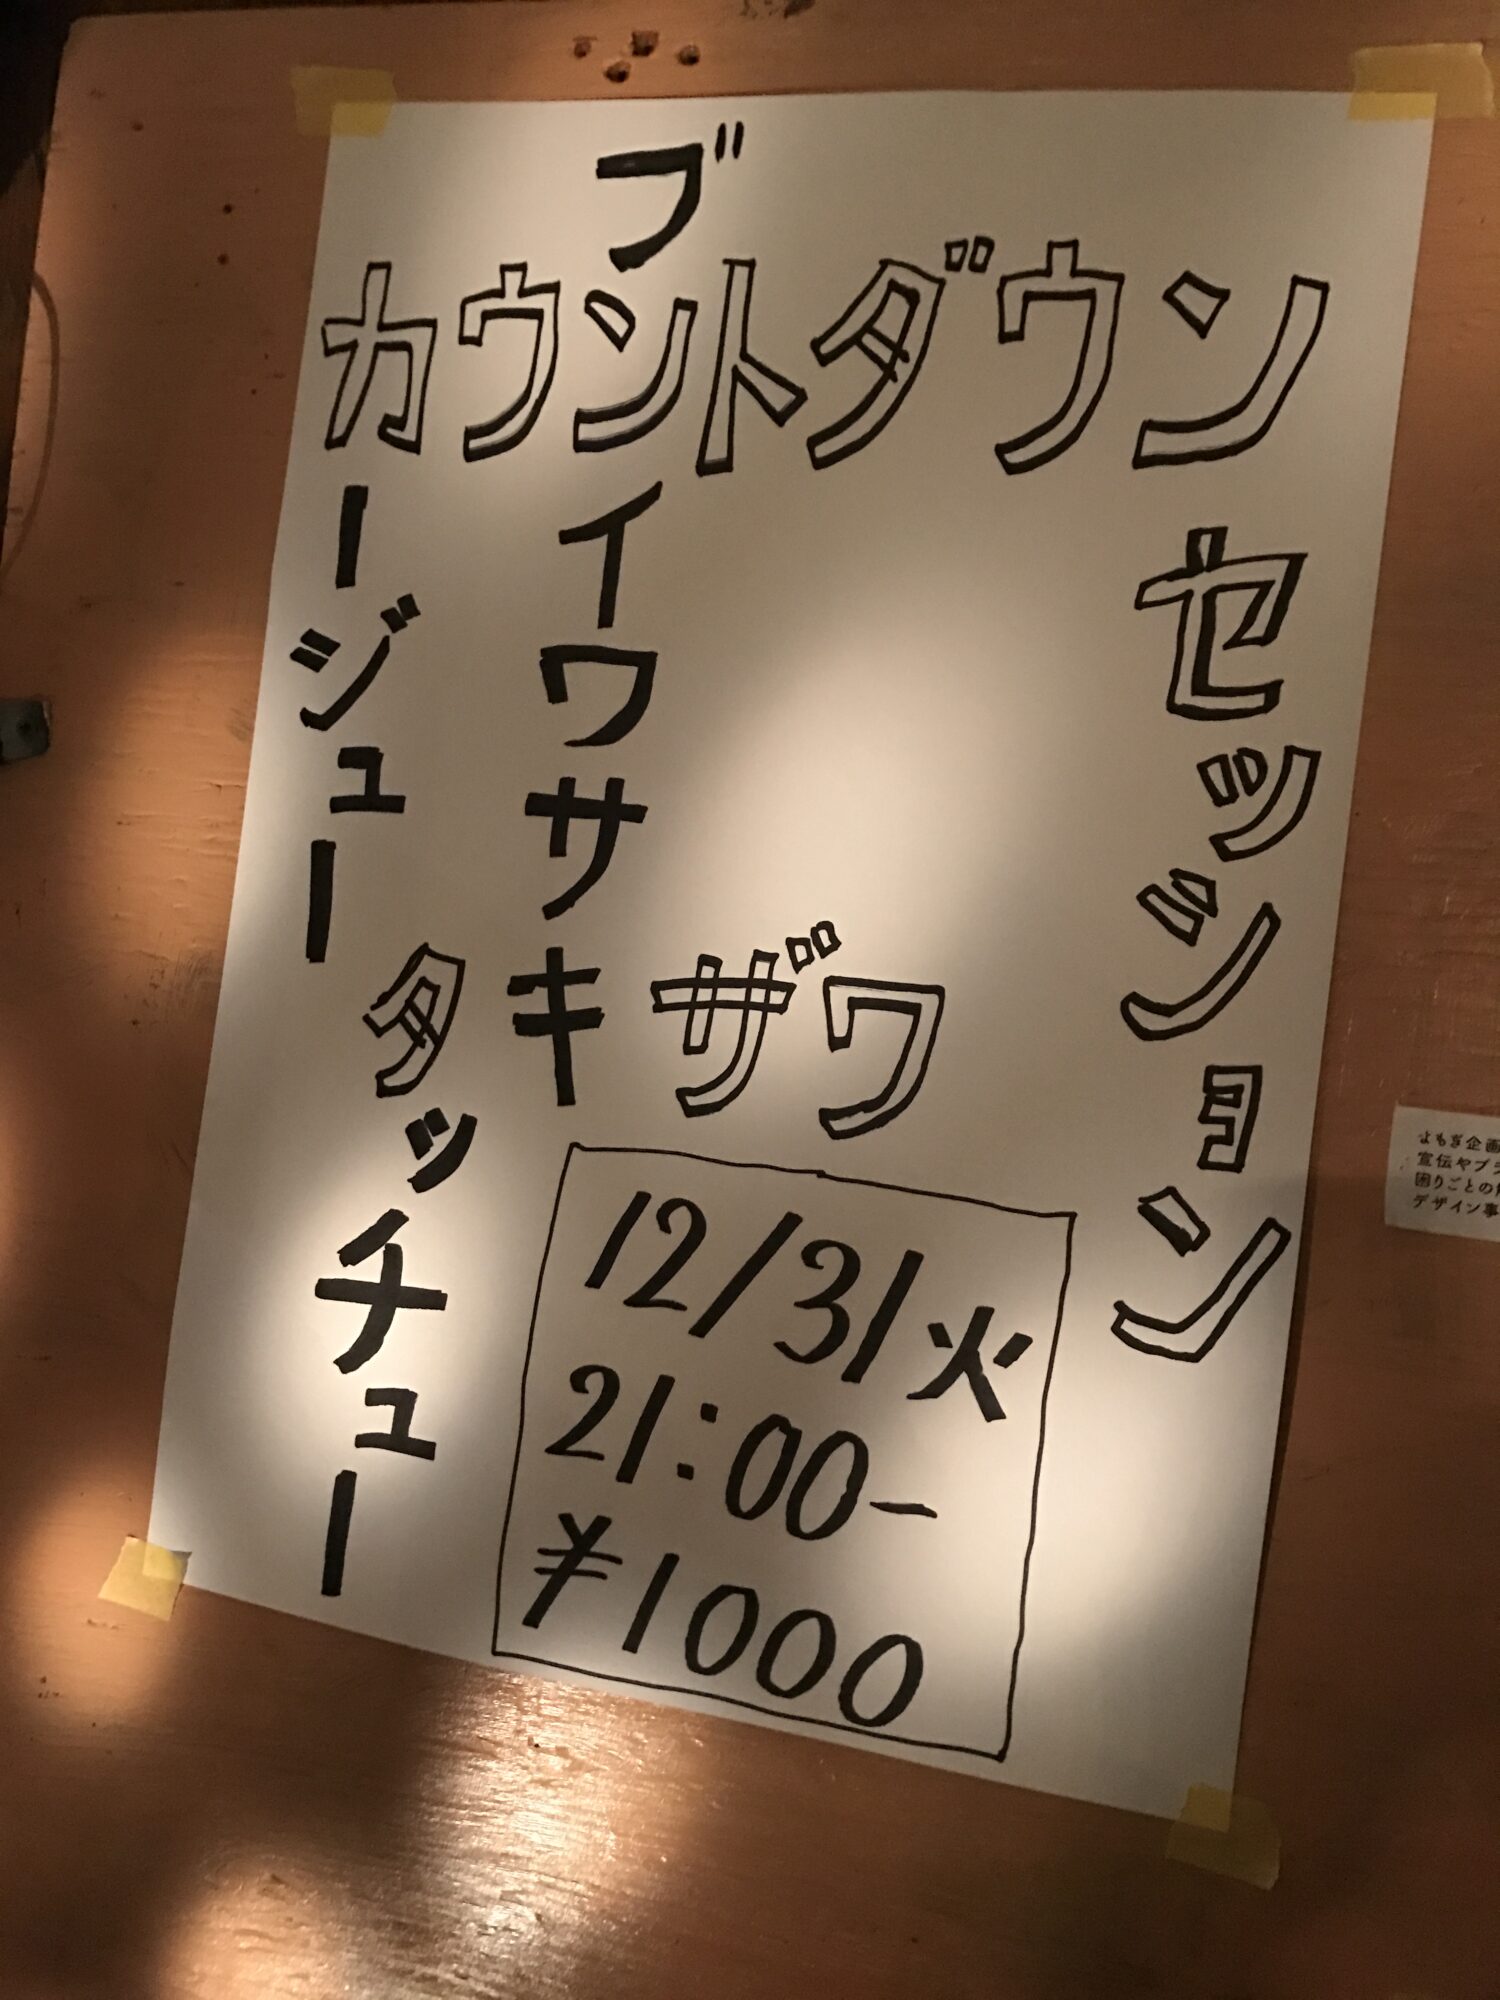 カウントダウン
セッション
ブンイワサキ
カージュー
タキザワ
タッチュー
12/31火
21:00-
¥1000
よもぎ企画
宣伝やブ
困りごとの
デザイン事